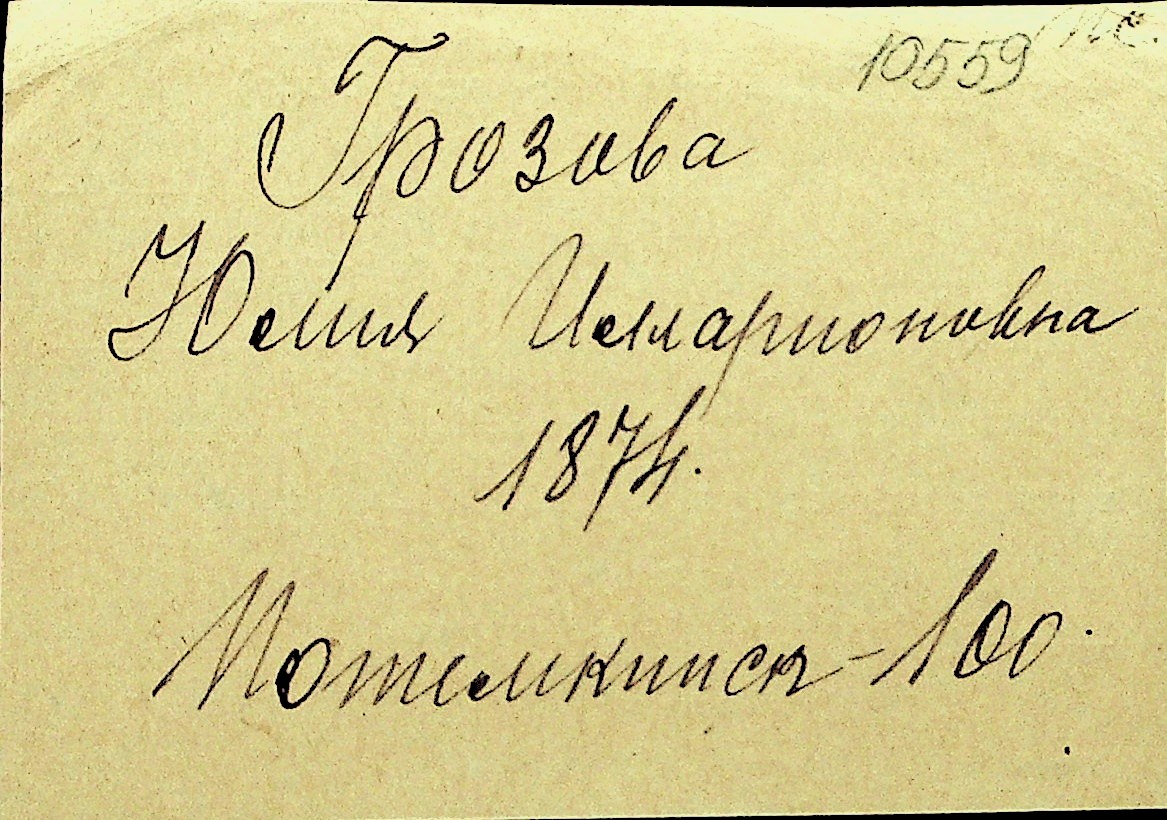 10559
Грозова
Юлия Илларионовна
1874.
Потемкинск - 100.